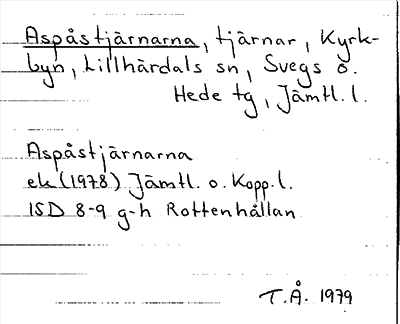 Aspåstjärnarna, tjärnar, Kyrk-
byn, Lillhärdals sn, Svegs o.
Hede tg, Jämtl. l.
Aspåstjärnarna
ek (1978) Jämtl. o. Kopp. l.
15D 8-9 g-h Rottenhållan
T.Å. 1979